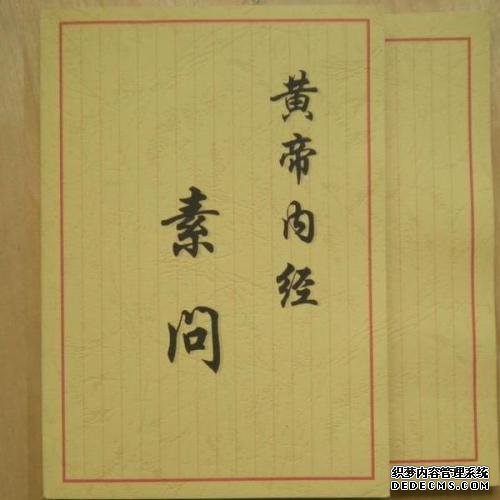 黄帝内经
素问
织梦内容管理系统
DEDECMS.COM